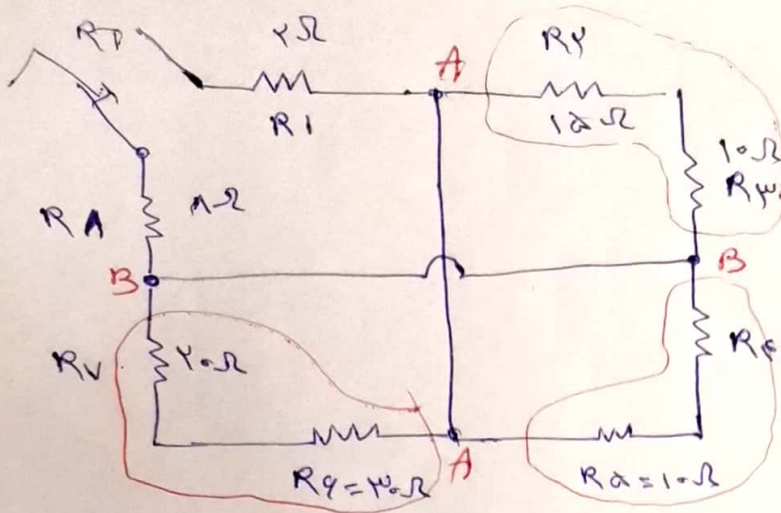 RT
۲Ω
R۱
A
R۲
۱۵Ω
۱۰Ω
R۳
R۸
۸Ω
B
B
R۷
۲۰Ω
R۴
R۶=۳۰Ω
A
R۵=۱۰Ω